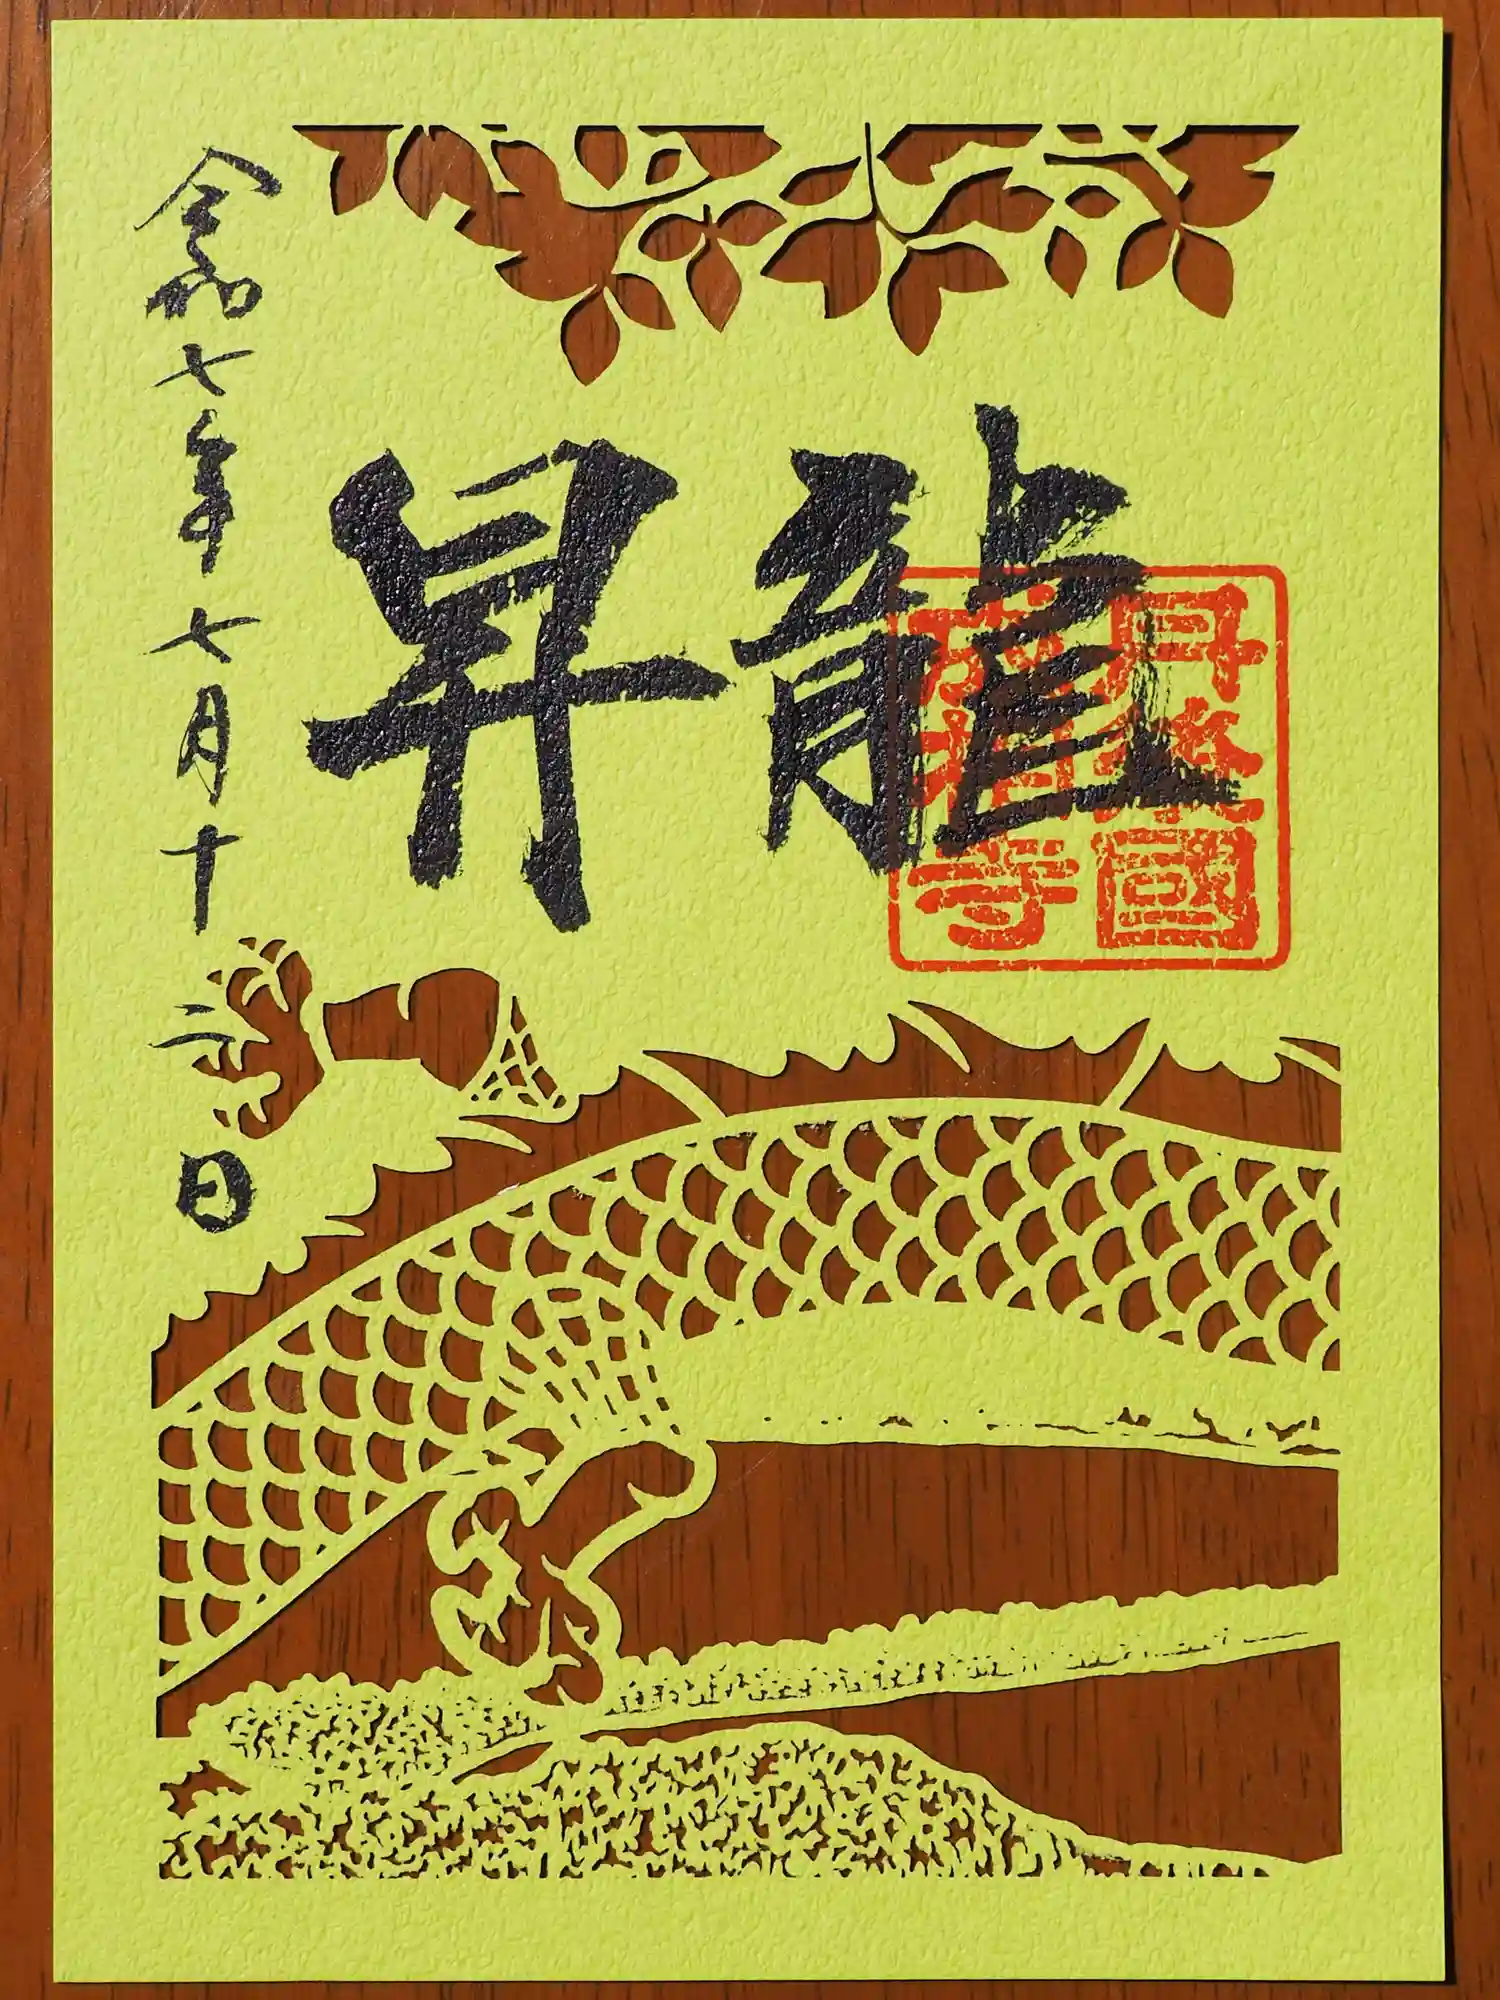 昇龍
丹後國
成相寺
令和七年七月十二日